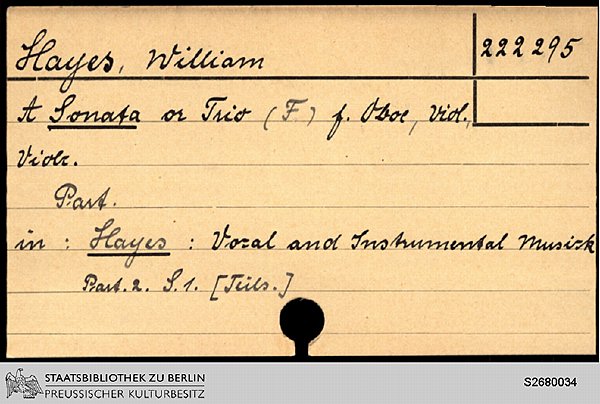 Hayes, William
222 295
A Sonata or Trio (F.) f. Oboe, Viol.,
Violc.
Part.
in : Hayes : Vocal and Instrumental Musick
Part. 2. S. 1. [Teils.]
STAATSBIBLIOTHEK ZU BERLIN
PREUSSISCHER KULTURBESITZ
S2680034